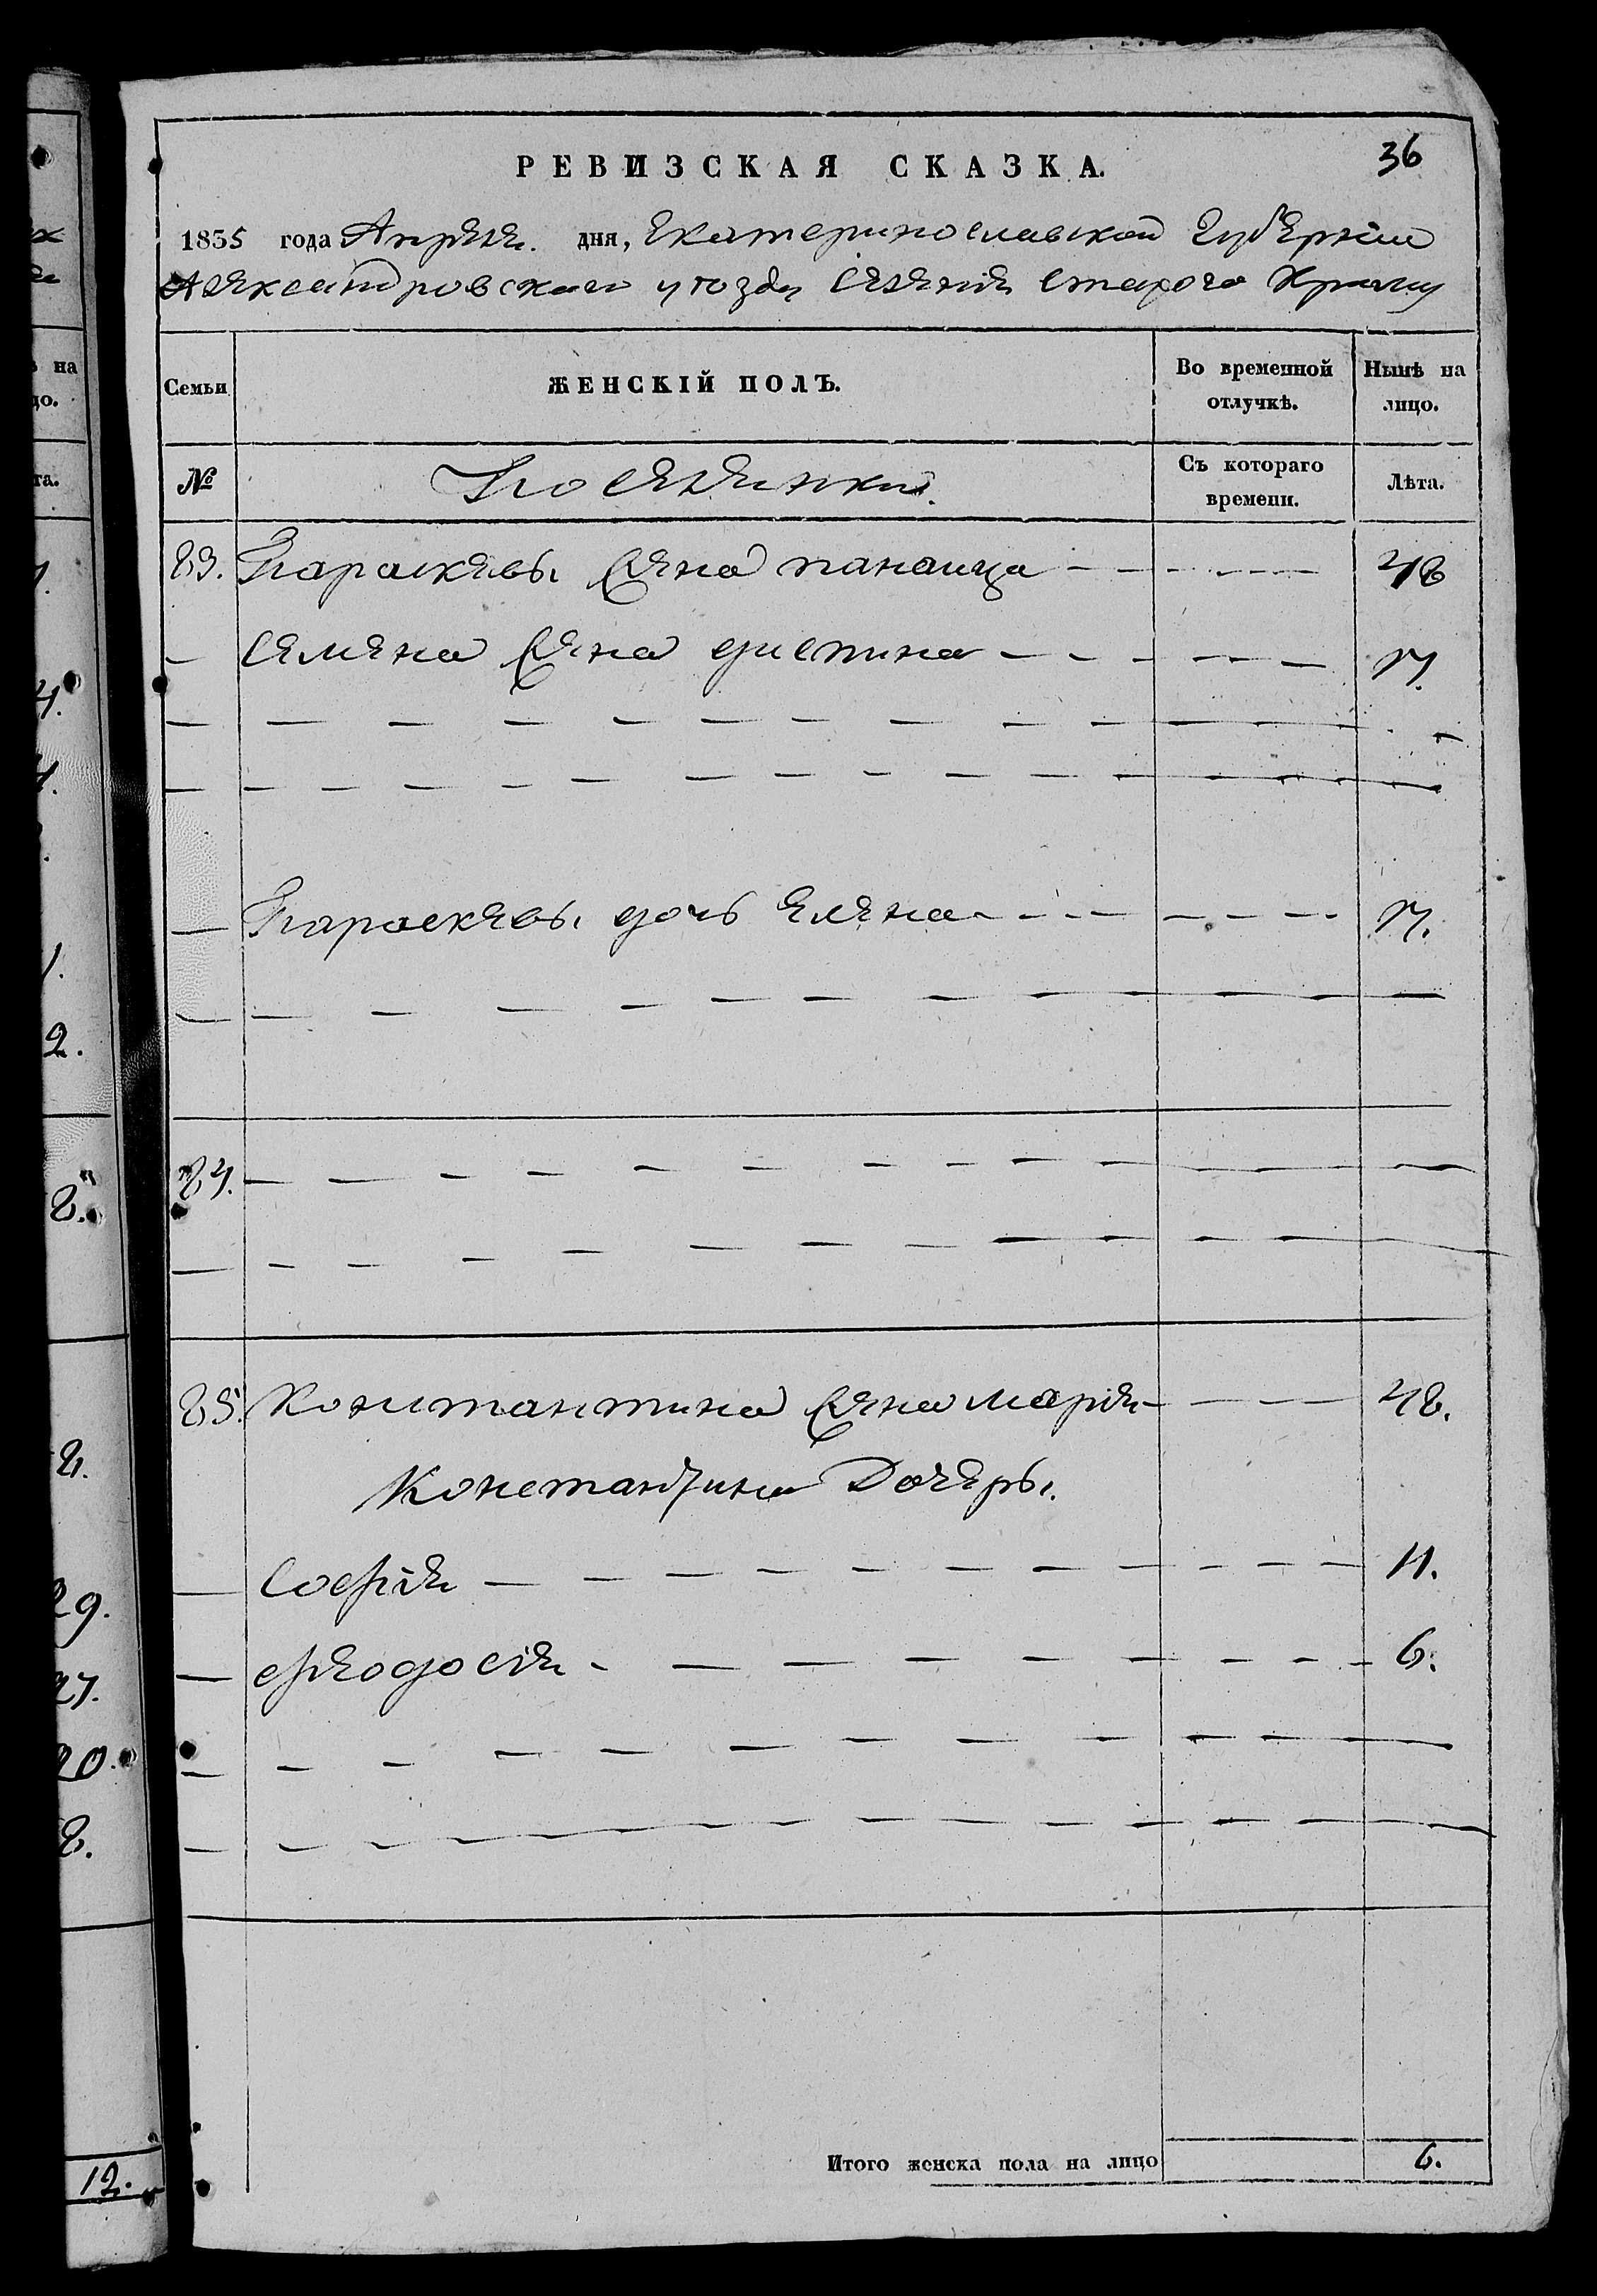 36
РЕВИЗСКАЯ СКАЗКА.
1835 года Апреля. дня, Екатеринославской Губернии
Александровского уезда Селения Старого Крыму
Семьи
ЖЕНСКІЙ ПОЛЪ.
Во временной отлучкѣ.
Нынѣ на лицо.
№
Поселянки.
Съ котораго времени.
Лѣта.
83. Параскевы жена панаица - - - 48
- Семена жена христина - - - 17.
- Параскевы дочь елена - - - 17.
84.
85. Константина жена мария - - - 42.
Константина Дочеры.
- София - - - 11.
- феодосия - - - 6.
Итого женска пола на лицо 6.
на
до.
та.
2.
29.
27.
20.
12.